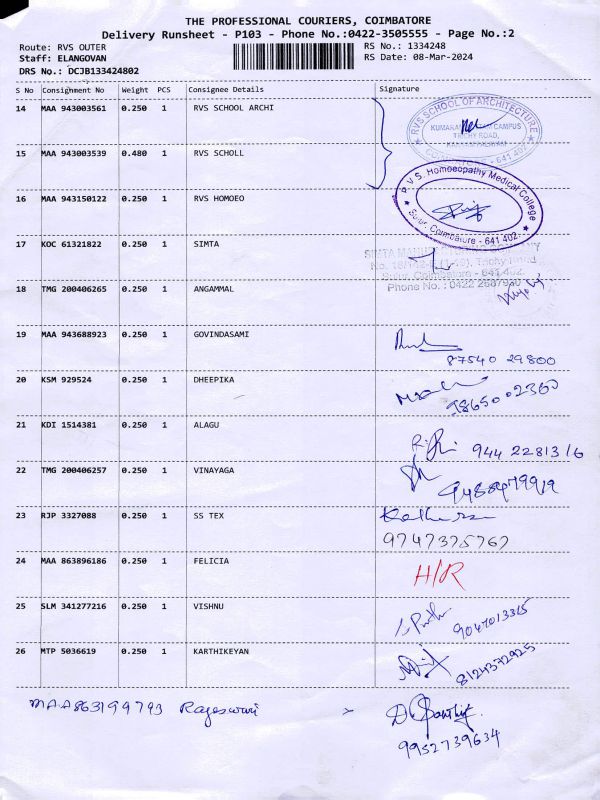 THE PROFESSIONAL COURIERS, COIMBATORE
Delivery Runsheet - P103 - Phone No.:0422-3505555 - Page No.:2
Route: RVS OUTER RS No.: 1334248
Staff: ELANGOVAN RS Date: 08-Mar-2024
DRS No.: DCJB133424802
S No Consignment No Weight PCS Consignee Details Signature
14 MAA 943003561 0.250 1 RVS SCHOOL ARCHI
RVS SCHOOL OF ARCHITECTURE
CAMPUS
15 MAA 943003539 0.480 1 RVS SCHOLL
COIMBATORE - 641 402
16 MAA 943150122 0.250 1 RVS HOMOEO
R.V.S. Homoeopathy Medical College
Sulur, Coimbatore - 641 402.
17 KOC 61321822 0.250 1 SIMTA
Trichy Road
Sulur, Coimbatore - 641 402.
Phone No. : 0422
18 TMG 200406265 0.250 1 ANGAMMAL
19 MAA 943688923 0.250 1 GOVINDASAMI
87540 29800
20 KSM 929524 0.250 1 DHEEPIKA
98650 02360
21 KDI 1514381 0.250 1 ALAGU
944 22813 16
22 TMG 200406257 0.250 1 VINAYAGA
23 RJP 3327088 0.250 1 SS TEX
9747375767
24 MAA 863896186 0.250 1 FELICIA H/R
25 SLM 341277216 0.250 1 VISHNU
9047013315
26 MTP 5036619 0.250 1 KARTHIKEYAN
8124372925
MAA863199793 Rajeswari
9952739634